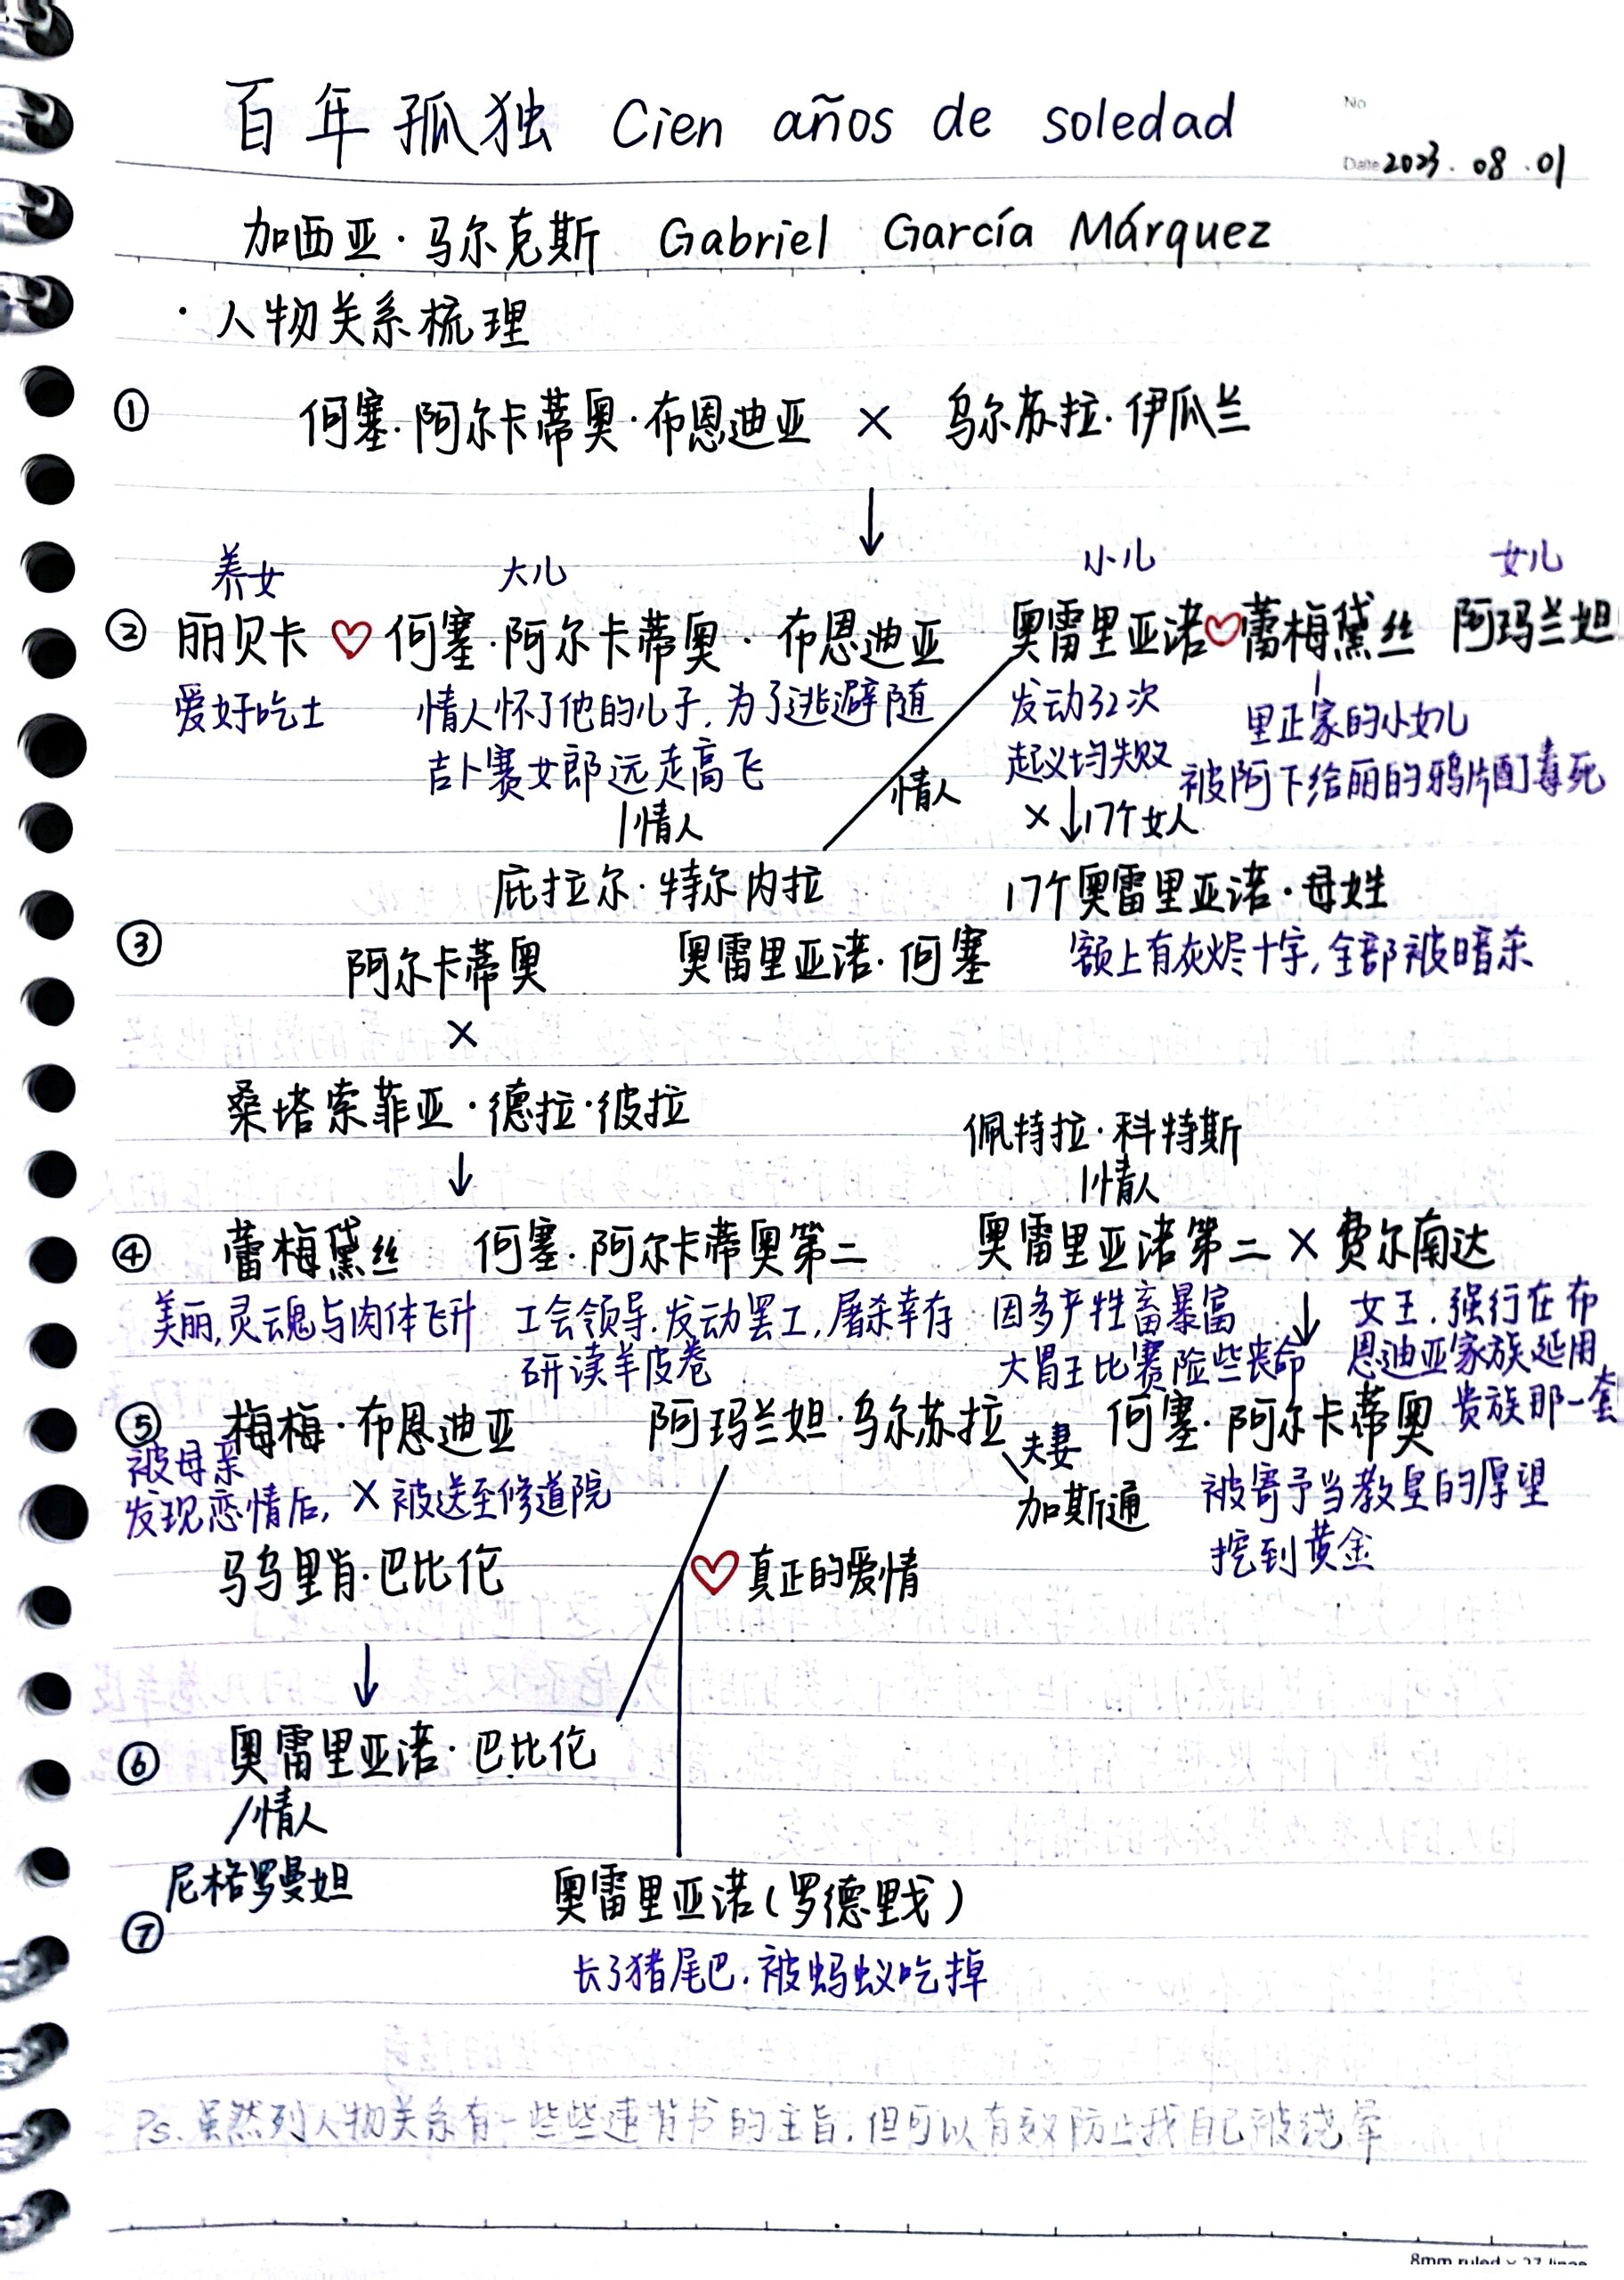 百年孤独 Cien años de soledad
No
Date 2023.08.01
加西亚·马尔克斯 Gabriel García Márquez
·人物关系梳理
① 何塞·阿尔卡蒂奥·布恩迪亚 × 乌尔苏拉·伊瓜兰
↓
养女 大儿 小儿 女儿
② 丽贝卡 ♡ 何塞·阿尔卡蒂奥·布恩迪亚 奥雷里亚诺 ♡ 蕾梅黛丝 阿玛兰妲
爱好吃土 情人怀了他的儿子,为了逃避随 发动32次 里正家的小女儿
吉卜赛女郎远走高飞 起义均失败 被阿下给丽的鸦片酊毒死
情人 情人 × ↓17个女人
庇拉尔·特尔内拉 17个奥雷里亚诺·母姓
③ 阿尔卡蒂奥 奥雷里亚诺·何塞 额上有灰烬十字,全部被暗杀
×
桑塔索菲亚·德拉·彼拉 佩特拉·科特斯
↓ 情人
④ 蕾梅黛丝 何塞·阿尔卡蒂奥第二 奥雷里亚诺第二 × 费尔南达
美丽,灵魂与肉体飞升 工会领导.发动罢工,屠杀幸存 因多产牲畜暴富 ↓ 女王.强行在布
研读羊皮卷 大胃王比赛险些丧命 恩迪亚家族延用
⑤ 梅梅·布恩迪亚 阿玛兰妲·乌尔苏拉 何塞·阿尔卡蒂奥 贵族那一套
被母亲 夫妻
发现恋情后, × 被送至修道院 加斯通 被寄予当教皇的厚望
马乌里肖·巴比伦 ♡ 真正的爱情 挖到黄金
↓
⑥ 奥雷里亚诺·巴比伦
情人
尼格罗曼妲 奥雷里亚诺(罗德里戈)
⑦
长了猪尾巴.被蚂蚁吃掉
Ps.虽然列人物关系有一些些违背书的主旨,但可以有效防止我自己被绕晕
8mm ruled × 27 lines